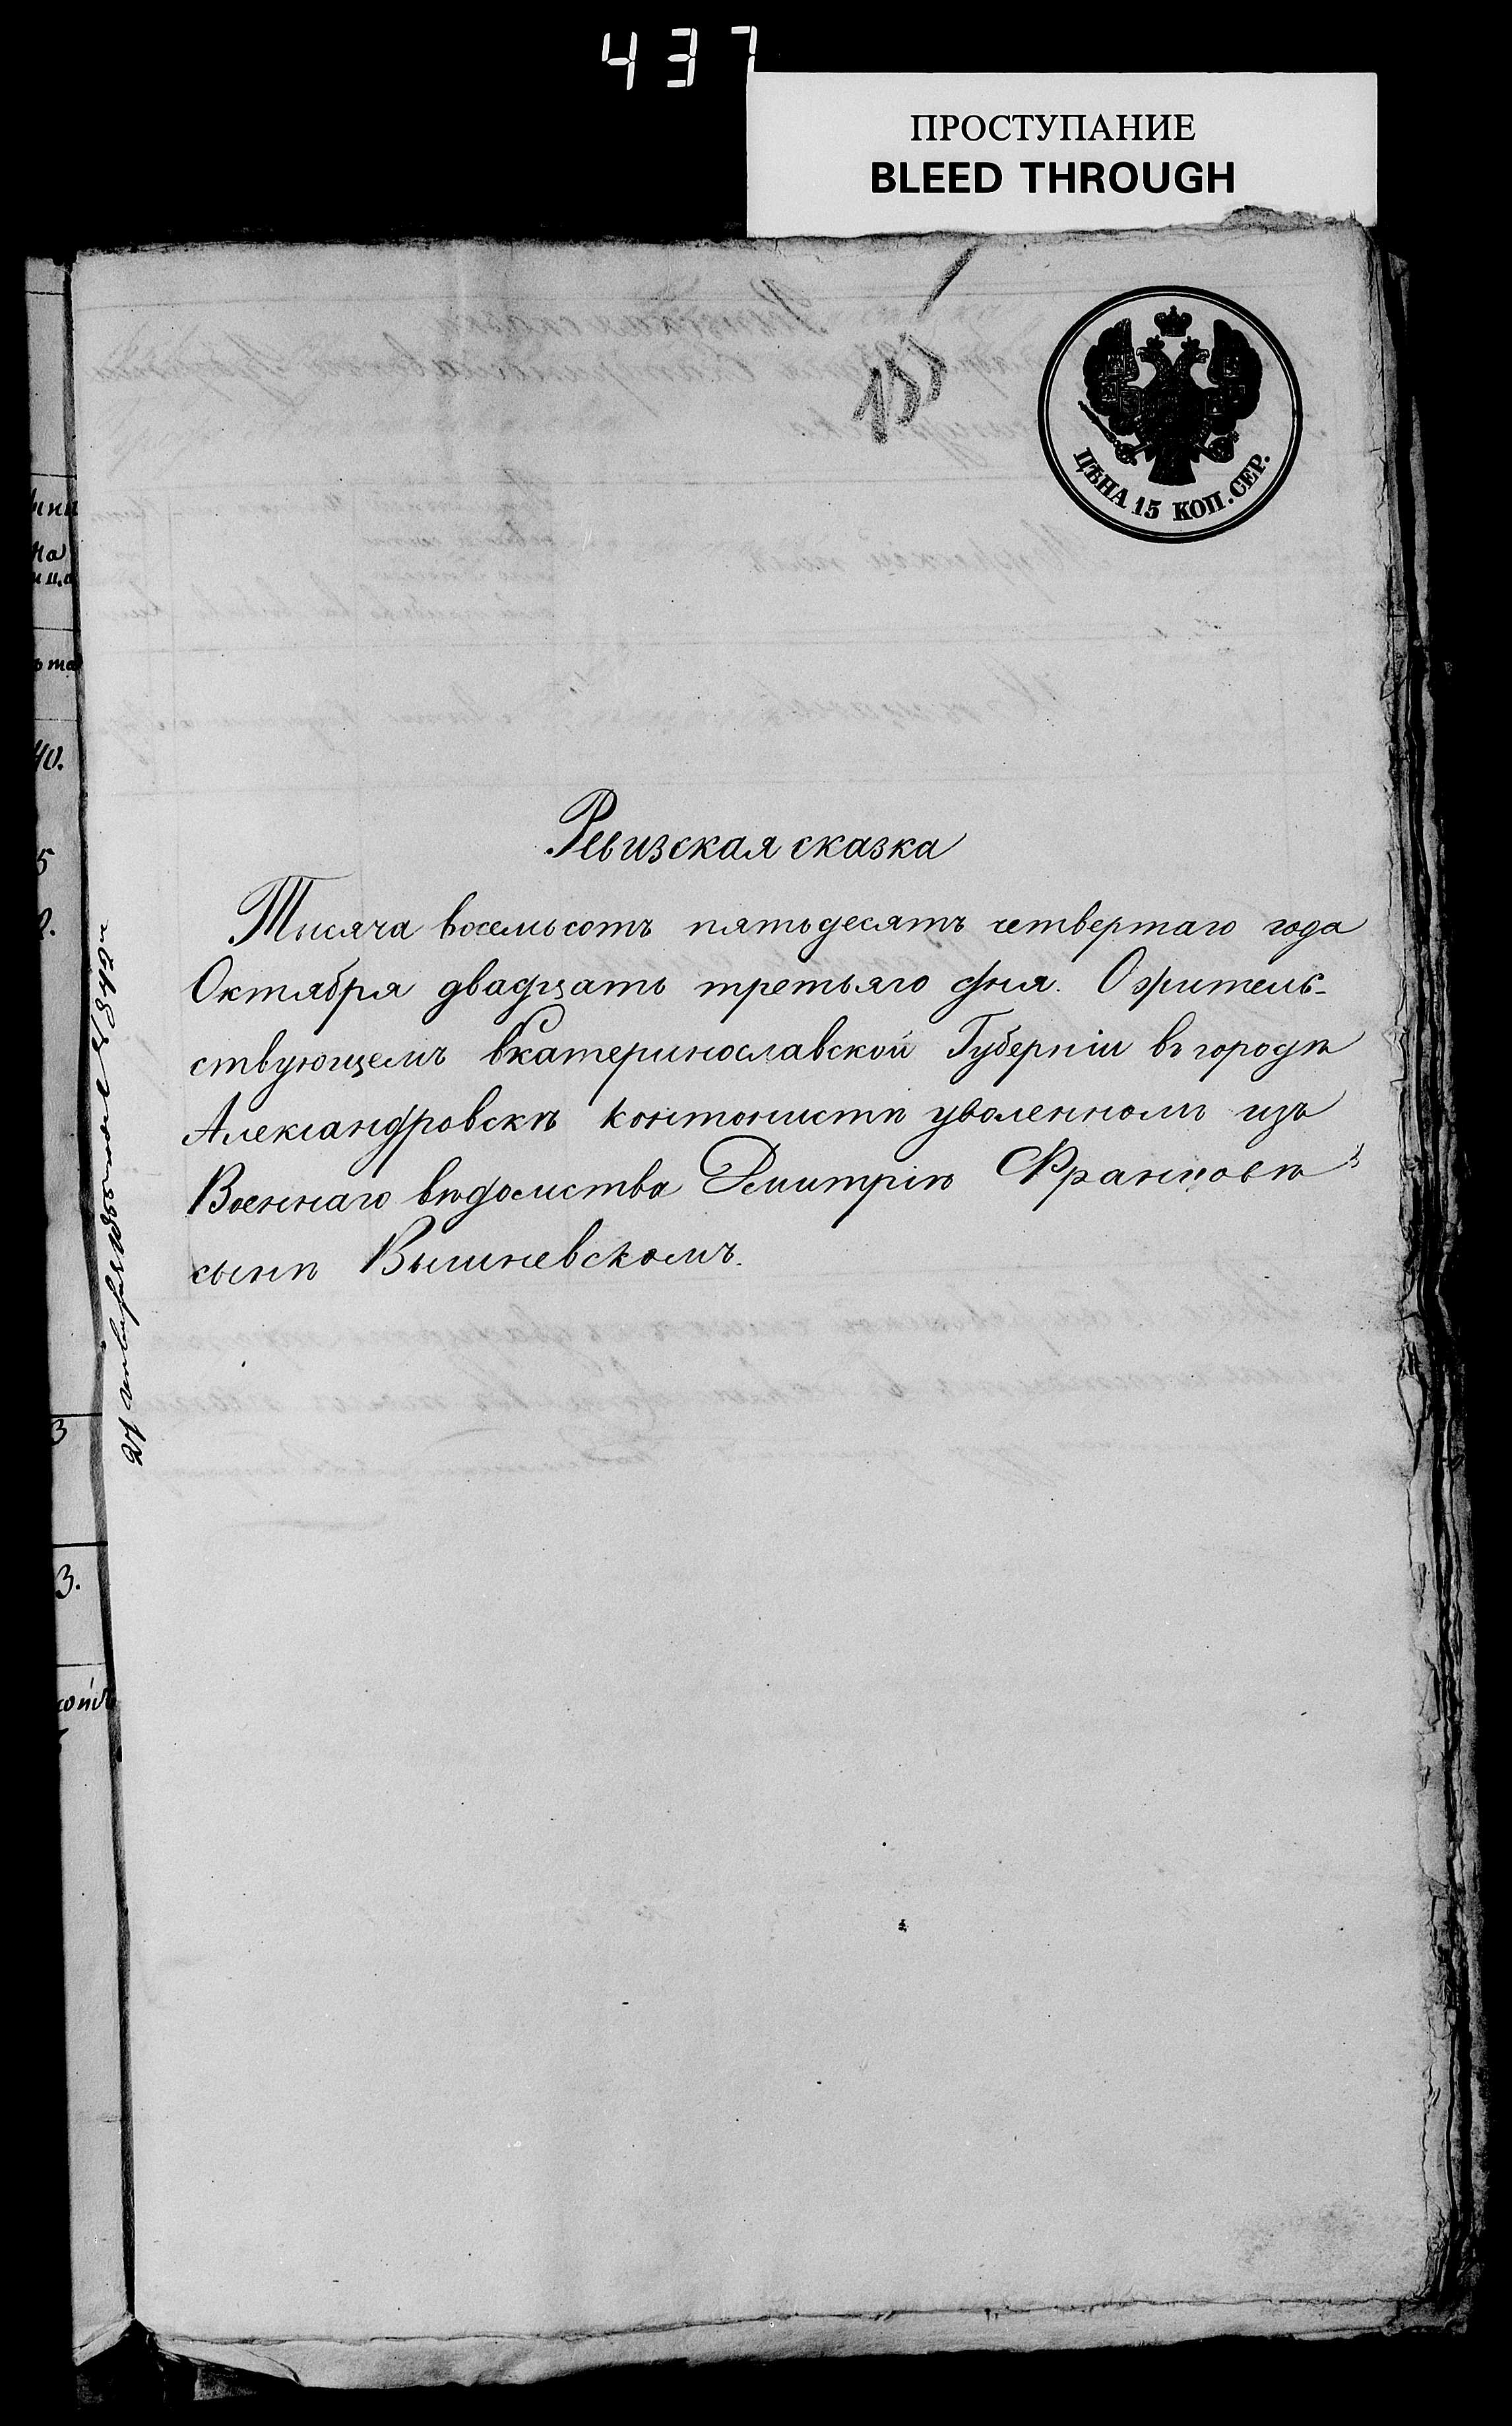 437
ПРОСТУПАНИЕ
BLEED THROUGH
155
ЦѢНА 15 КОП. СЕР.
Ревизская сказка
Тысяча восемьсотъ пятьдесятъ четвертаго года
Октября двадцать третьяго дня. О жительс-
ствующемъ Екатеринославской Губерніи въ городѣ
Александровскѣ кантонистѣ уволенномъ изъ
Военнаго вѣдомства Дмитріѣ Францовѣ
сынѣ Вишневскомъ.